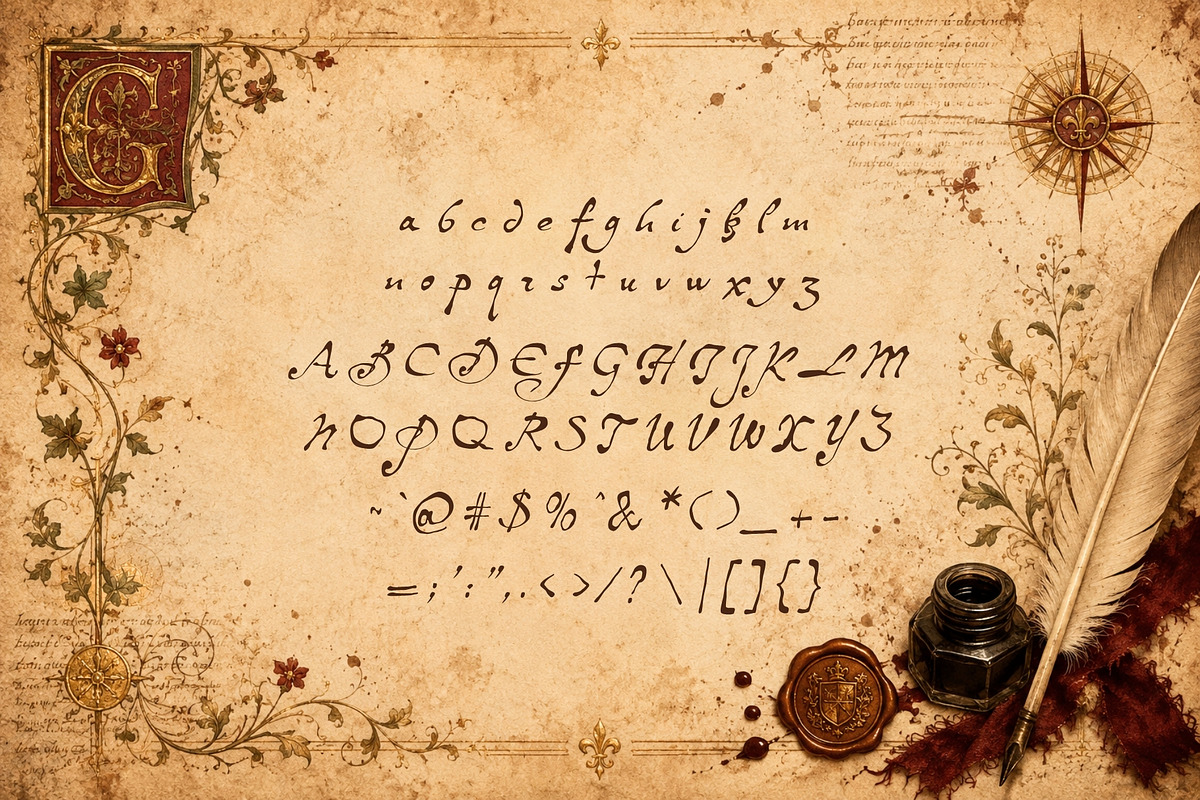 G
a b c d e f g h i j k l m
n o p q r s t u v w x y z
A B C D E F G H I J K L M
N O P Q R S T U V W X Y Z
~ ` @ # $ % ^ & * ( ) _ + -
= ; ' : " , . < > / ? \ | [ ] { }